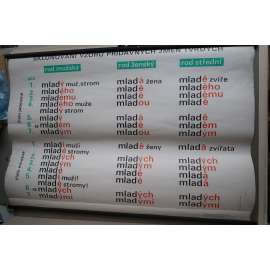 SKLOŇOVÁNÍ VZORU PŘÍDAVNÝCH JMEN TVRDÝCH
rod mužský rod ženský rod střední
mladý muž, strom mladá žena mladé zvíře
mladého mladé mladého
mladému mladé mladému
mladého muže mladou mladé
mladý strom
mladý mladá mladé
mladém mladé mladém
mladým mladou mladým
mladí muži mladé ženy mladá zvířata
mladé stromy
mladých mladých mladých
mladým mladým mladým
mladé mladé mladá
mladí muži! mladé mladá
mladé stromy!
mladých mladých mladých
mladými mladými mladými